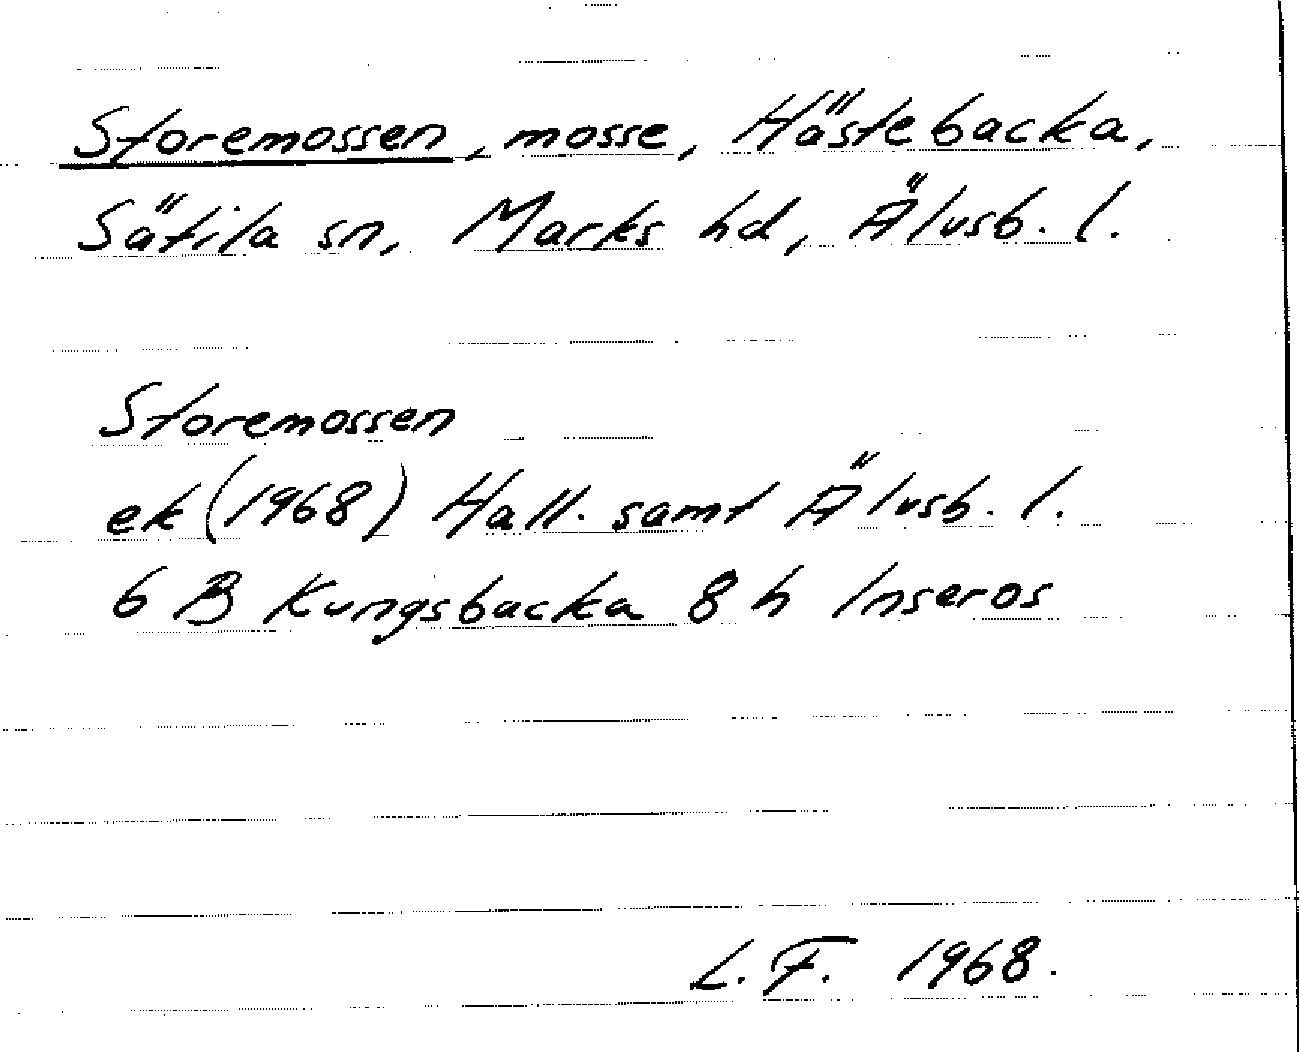 Storemossen, mosse, Hästebacka,
Sätila sn, Marks hd, Älvsb. l.
Storemossen
ek (1968) Hall. samt Älvsb. l.
6 B Kungsbacka 8 h Inseros
L. F. 1968.